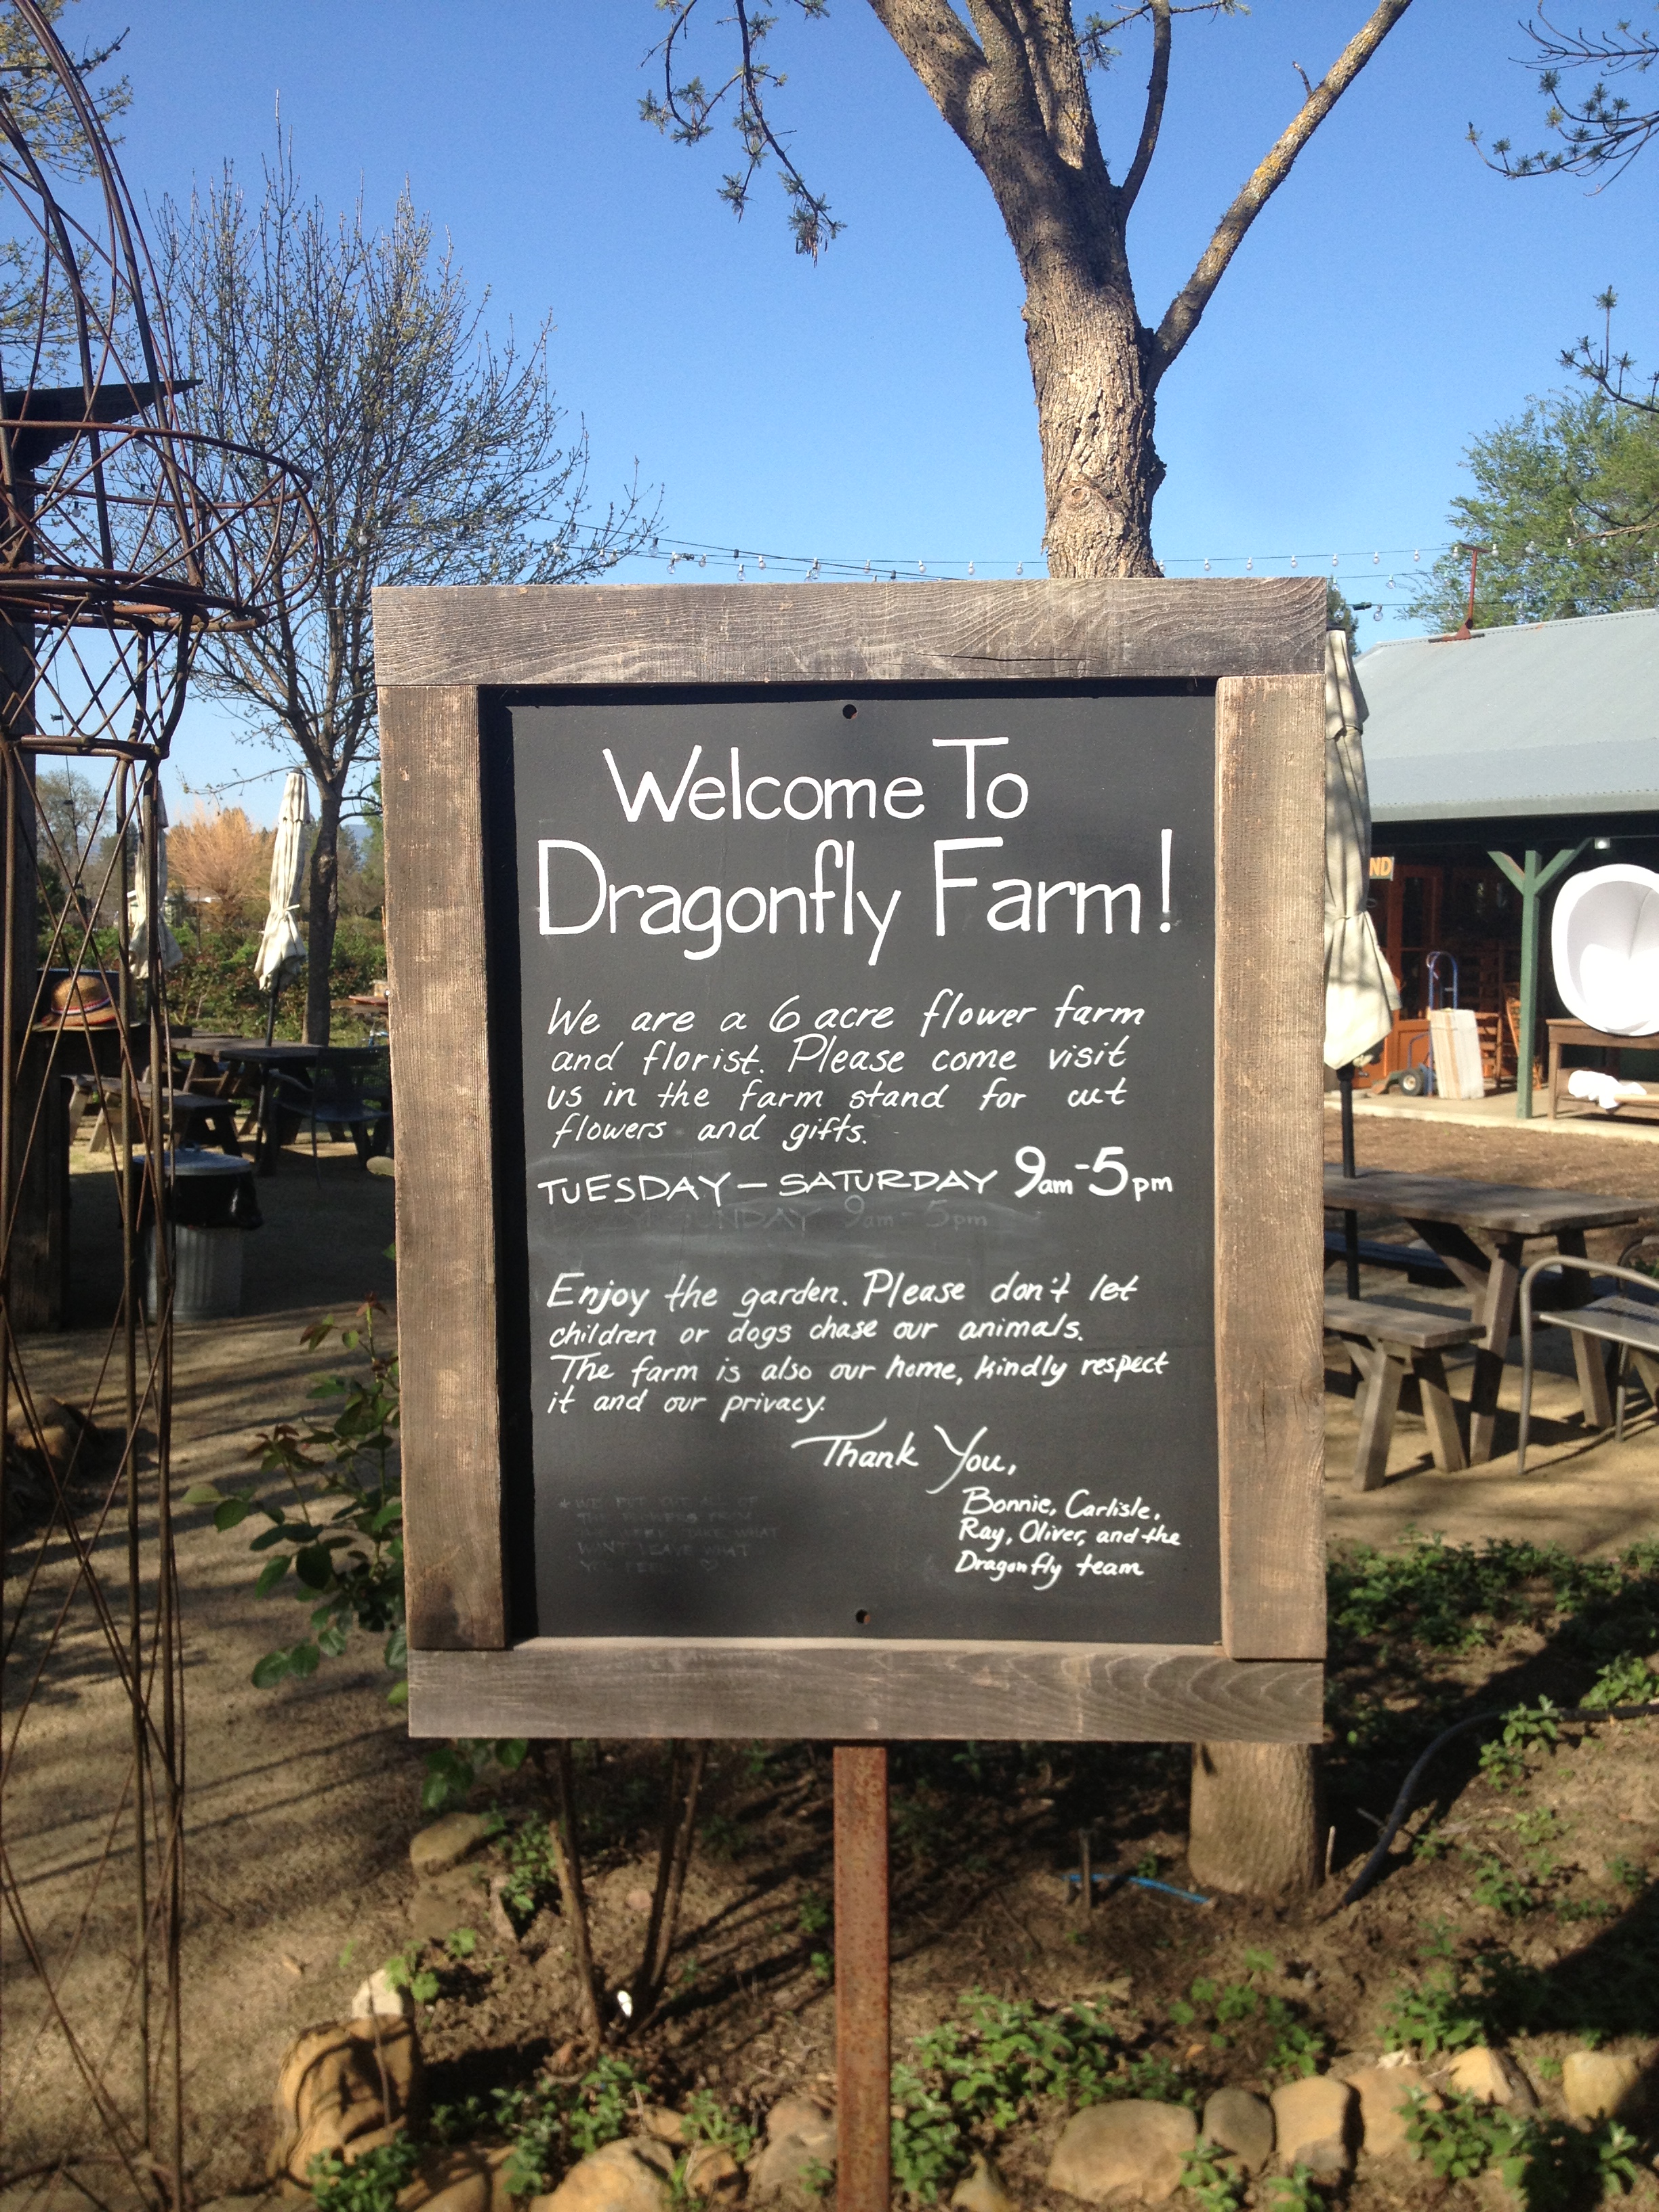 Welcome To
Dragonfly Farm!
We are a 6 acre flower farm
and florist. Please come visit
us in the farm stand for cut
flowers and gifts.
TUESDAY – SATURDAY 9am-5pm
SUNDAY 9am-5pm
Enjoy the garden. Please don't let
children or dogs chase our animals.
The farm is also our home, kindly respect
it and our privacy.
Thank You,
Bonnie, Carlisle,
Ray, Oliver, and the
Dragonfly team
* WE PUT OUT ALL OF
THE FLOWERS
WHAT
WHAT
YOU
ND